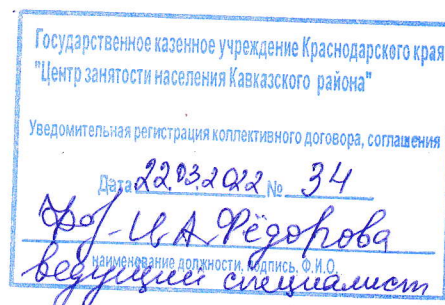 Государственное казенное учреждение Краснодарского края
"Центр занятости населения Кавказского района"
Уведомительная регистрация коллективного договора, соглашения
Дата 22.03.2022 № 34
И.А. Фёдорова
наименование должности, подпись, Ф.И.О.
ведущий специалист